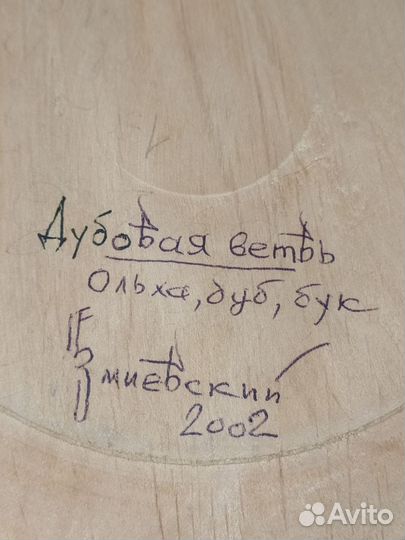 Дубовая ветвь
Ольха, дуб, бук
Змиевский
2002
Avito